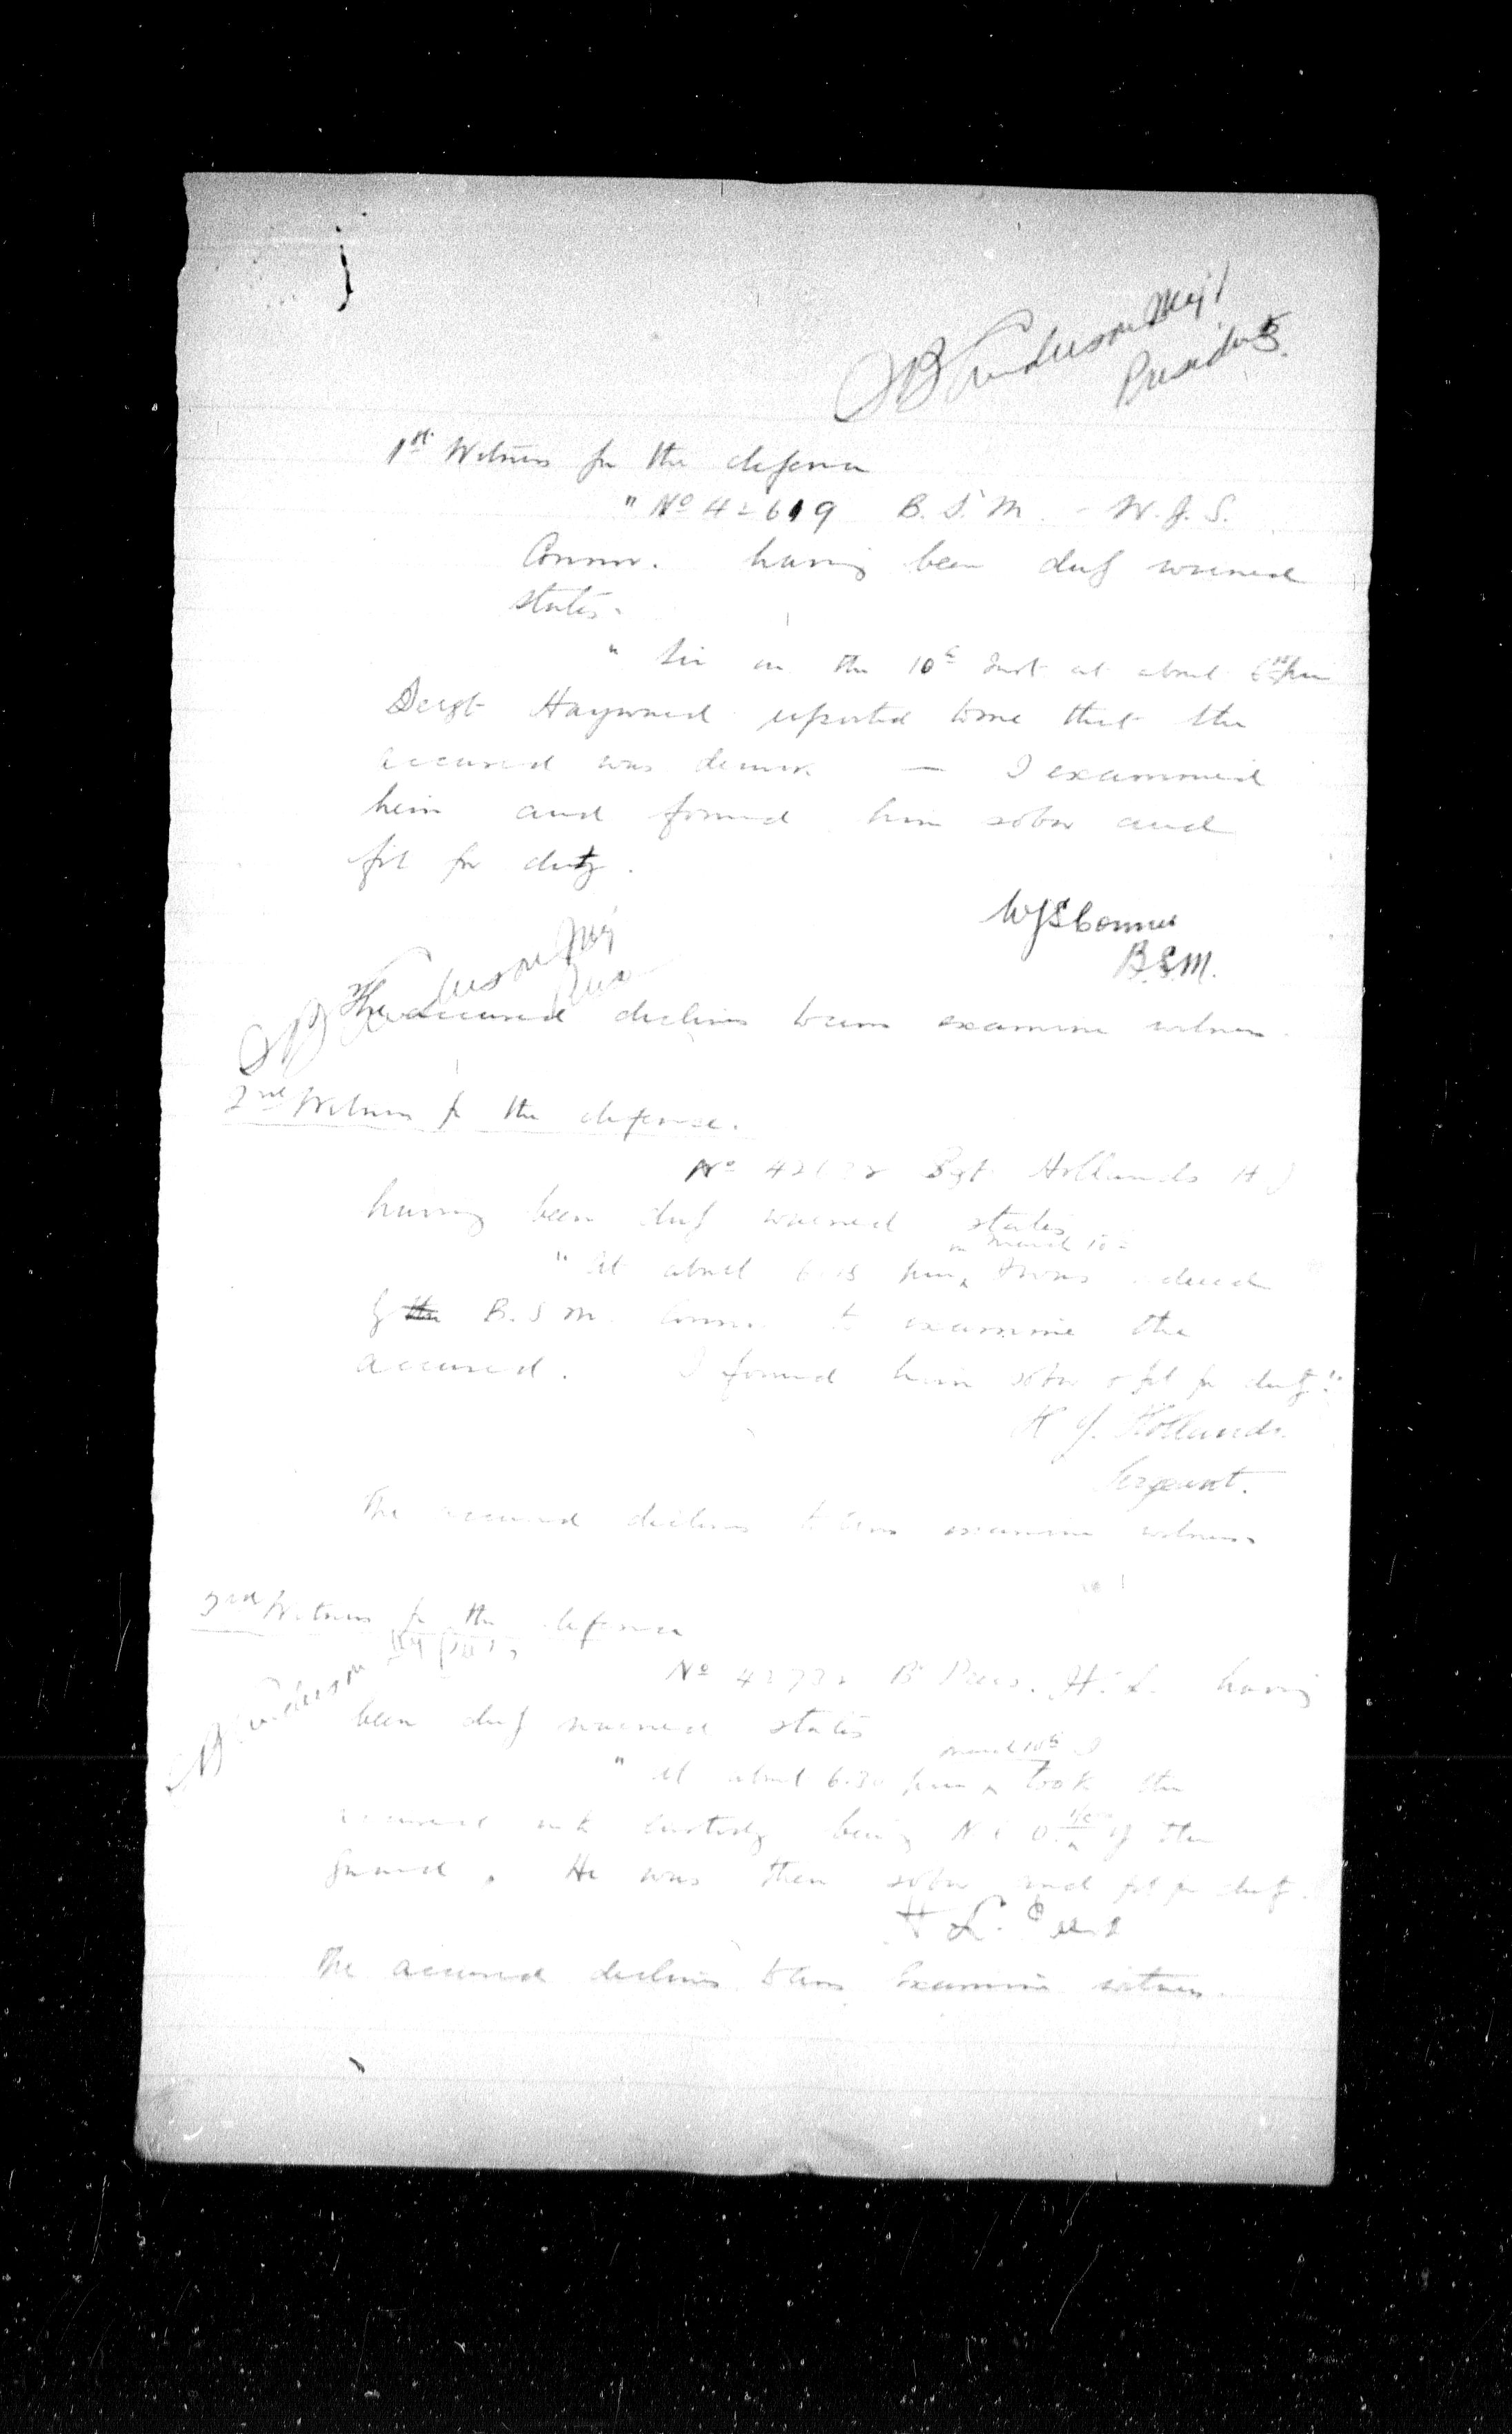 SB Anderson Maj'r
President
1st Witness for the defence
" No 42619 B.S.M. - W.J.S.
Connor. having been duly warned
states -
" Sir on the 10th Inst at about pm
Sergt Hayward reported to me that the
accused was drunk — I examined
him and found him sober and
fit for duty.
WJSConnor
B.S.M.
SB Anderson Maj
Pres
The accused declines to cross examine witness.
2nd Witness for the defence.
No Sgt. Hollands H J
having been duly warned states
on March 10th
" At about 6.15 pm I was ordered
by the B.S.M. Connor to examine the
accused. I found him sober & fit for duty."
H J. Hollands.
Sergeant.
The accused declines to cross examine witness
3rd Witness for the defence
Anderson Maj
No Br H. L. having
been duly warned states
March 10th I
" At about 6.30 pm took the
accused into custody being N C O i/c of the
guard. He was then sober and fit for duty.
H L.
The accused declines to cross examine witness.